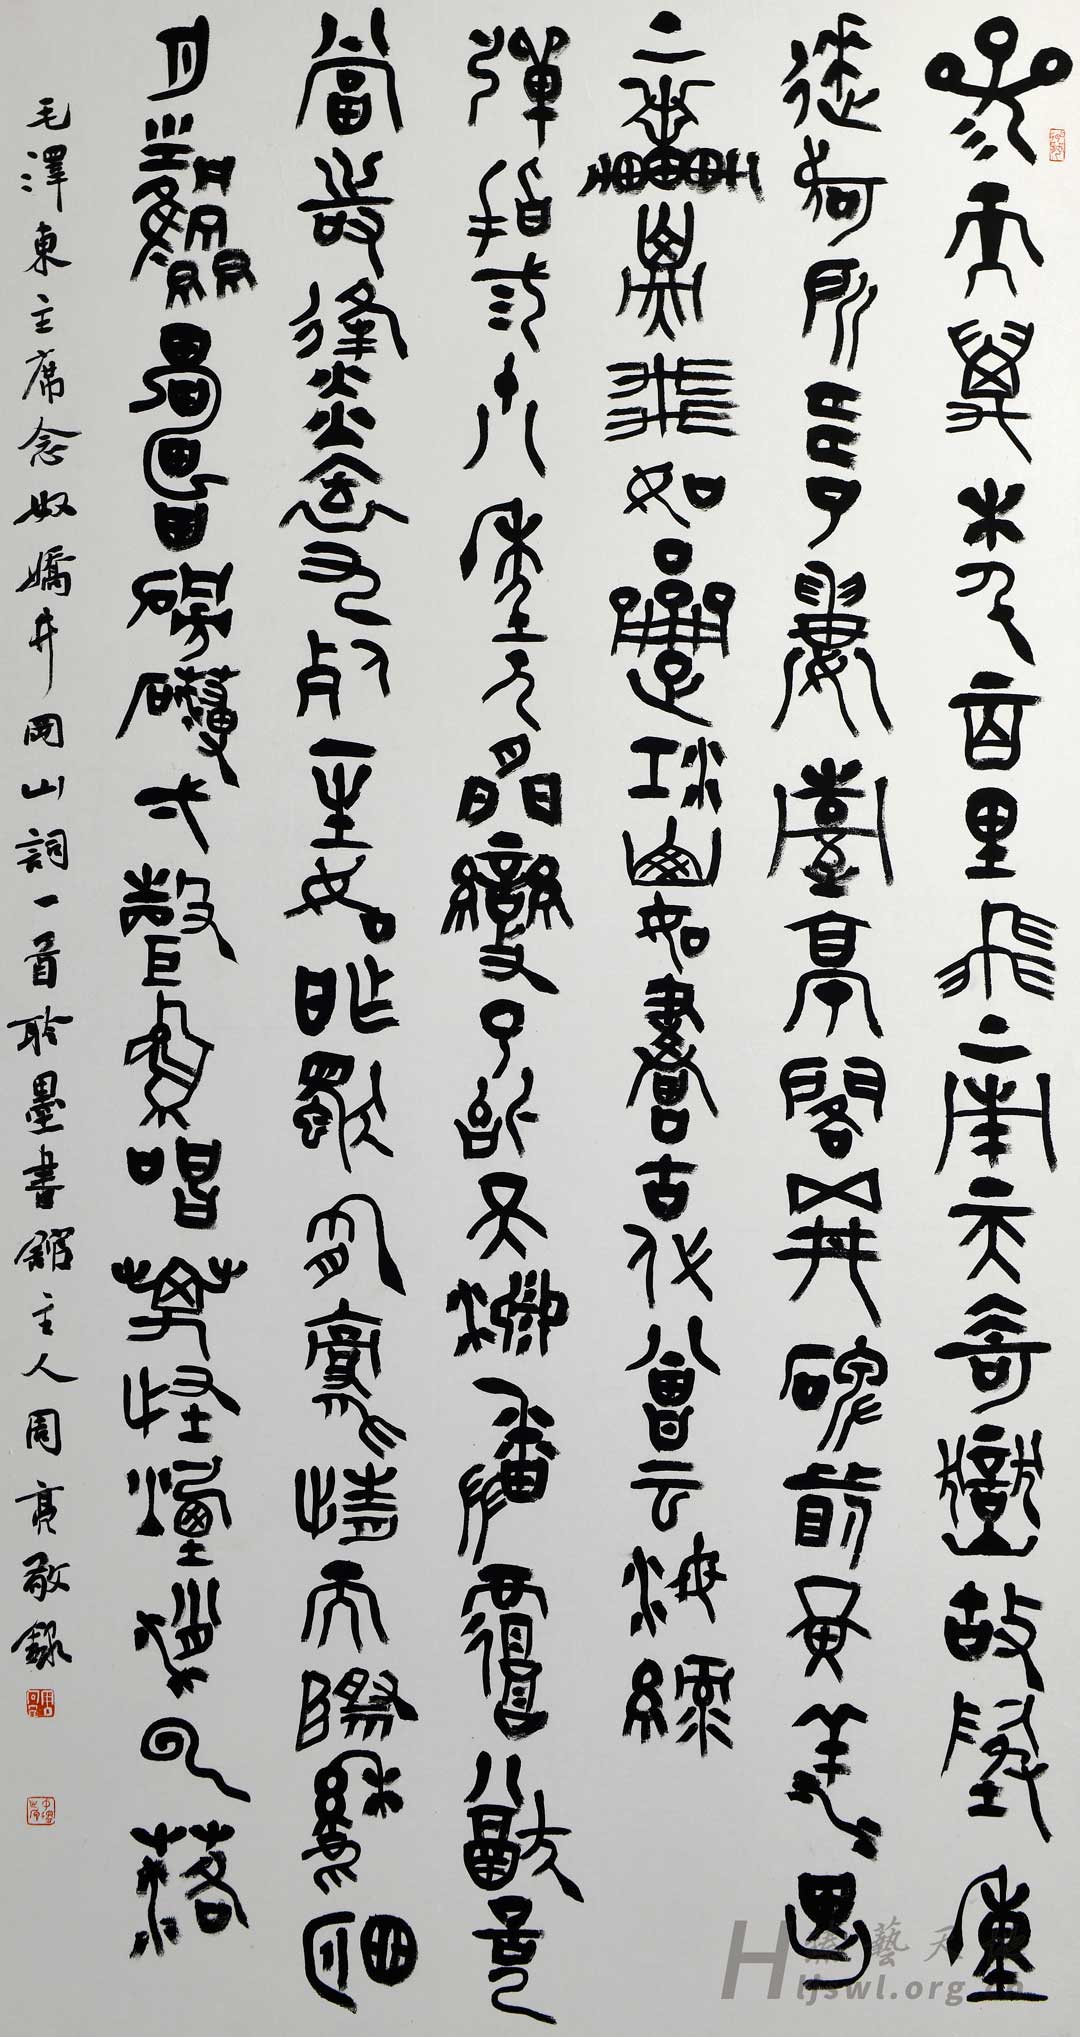 參天萬木千百里飛上南天奇嶽故地重
徠何所多了樓臺亭閣五井碑前黃羊界
上車子飛如躍江山如畫古代曾云海綠
彈指三十八年人間變了似天淵翻覆猶記
當時烽火里九死一生如昨獨有豪情天際懸明
月風雷磅礴一聲雞唱萬怪煙消雲落
毛澤東主席念奴嬌井岡山詞一首聆墨書館主人周亮敬錄
ljswl.org.cn